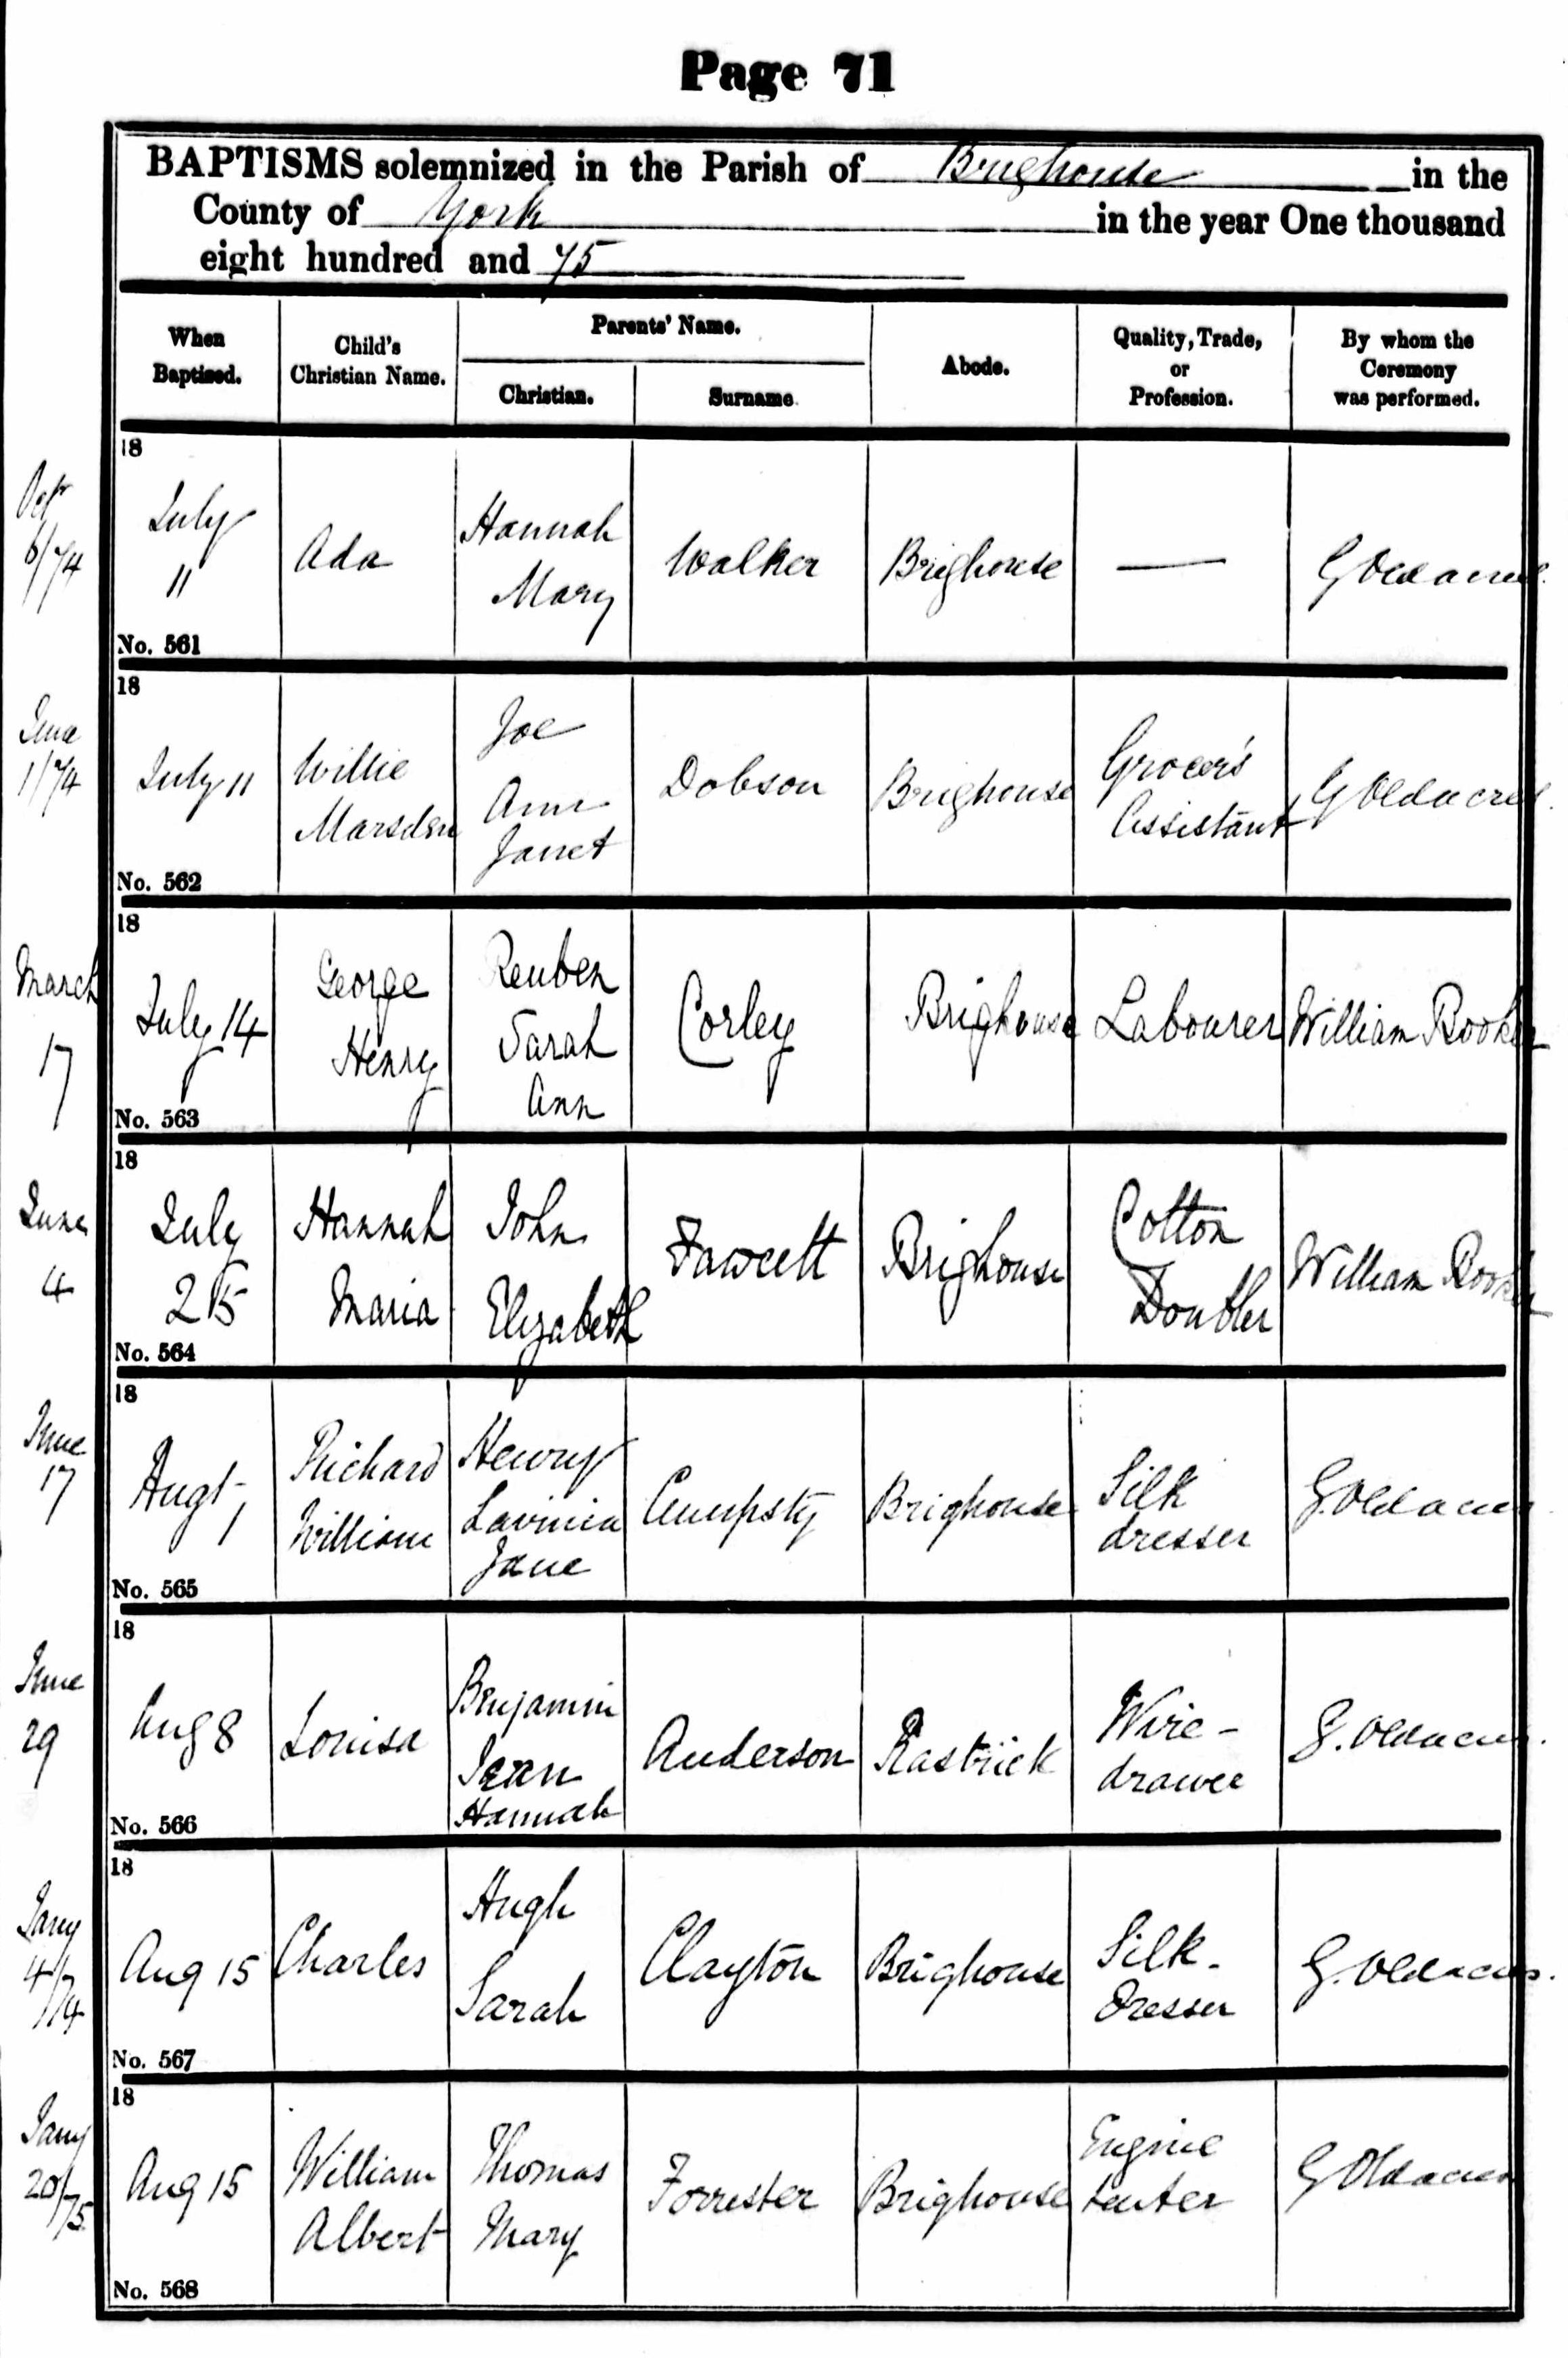 Page 71
BAPTISMS solemnized in the Parish of Brighouse in the
County of York in the year One thousand
eight hundred and 75
When Baptised.
Child's Christian Name.
Parents' Name.
Christian.
Surname
Abode.
Quality, Trade, or Profession.
By whom the Ceremony was performed.
Oct
6/74
18
July
11
No. 561
Ada
Hannah
Mary
Walker
Brighouse
—
G Oldacres.
June
1/74
18
July 11
No. 562
Willie
Marsden
Joe
Ann
Janet
Dobson
Brighouse
Grocer's
Assistant
G Oldacres.
March
17
18
July 14
No. 563
George
Henry
Reuben
Sarah
Ann
Corley
Brighouse
Labourer
William Booker
June
4
18
July
25
No. 564
Hannah
Maria
John
Elizabeth
Fawcett
Brighouse
Cotton
Doubler
William Booker
June
17
18
Augt 1
No. 565
Richard
William
Henry
Lavinia
Jane
Cumpsty
Brighouse
Silk
dresser
G. Oldacres
June
29
18
Aug 8
No. 566
Louisa
Benjamin
Hannah
Anderson
Rastrick
Wire-
drawer
G. Oldacres.
Jany
4/74
18
Aug 15
No. 567
Charles
Hugh
Sarah
Clayton
Brighouse
Silk-
Dresser
G. Oldacres.
Jany
20/75
18
Aug 15
No. 568
William
Albert
Thomas
Mary
Forrester
Brighouse
Engine
tenter
G Oldacres